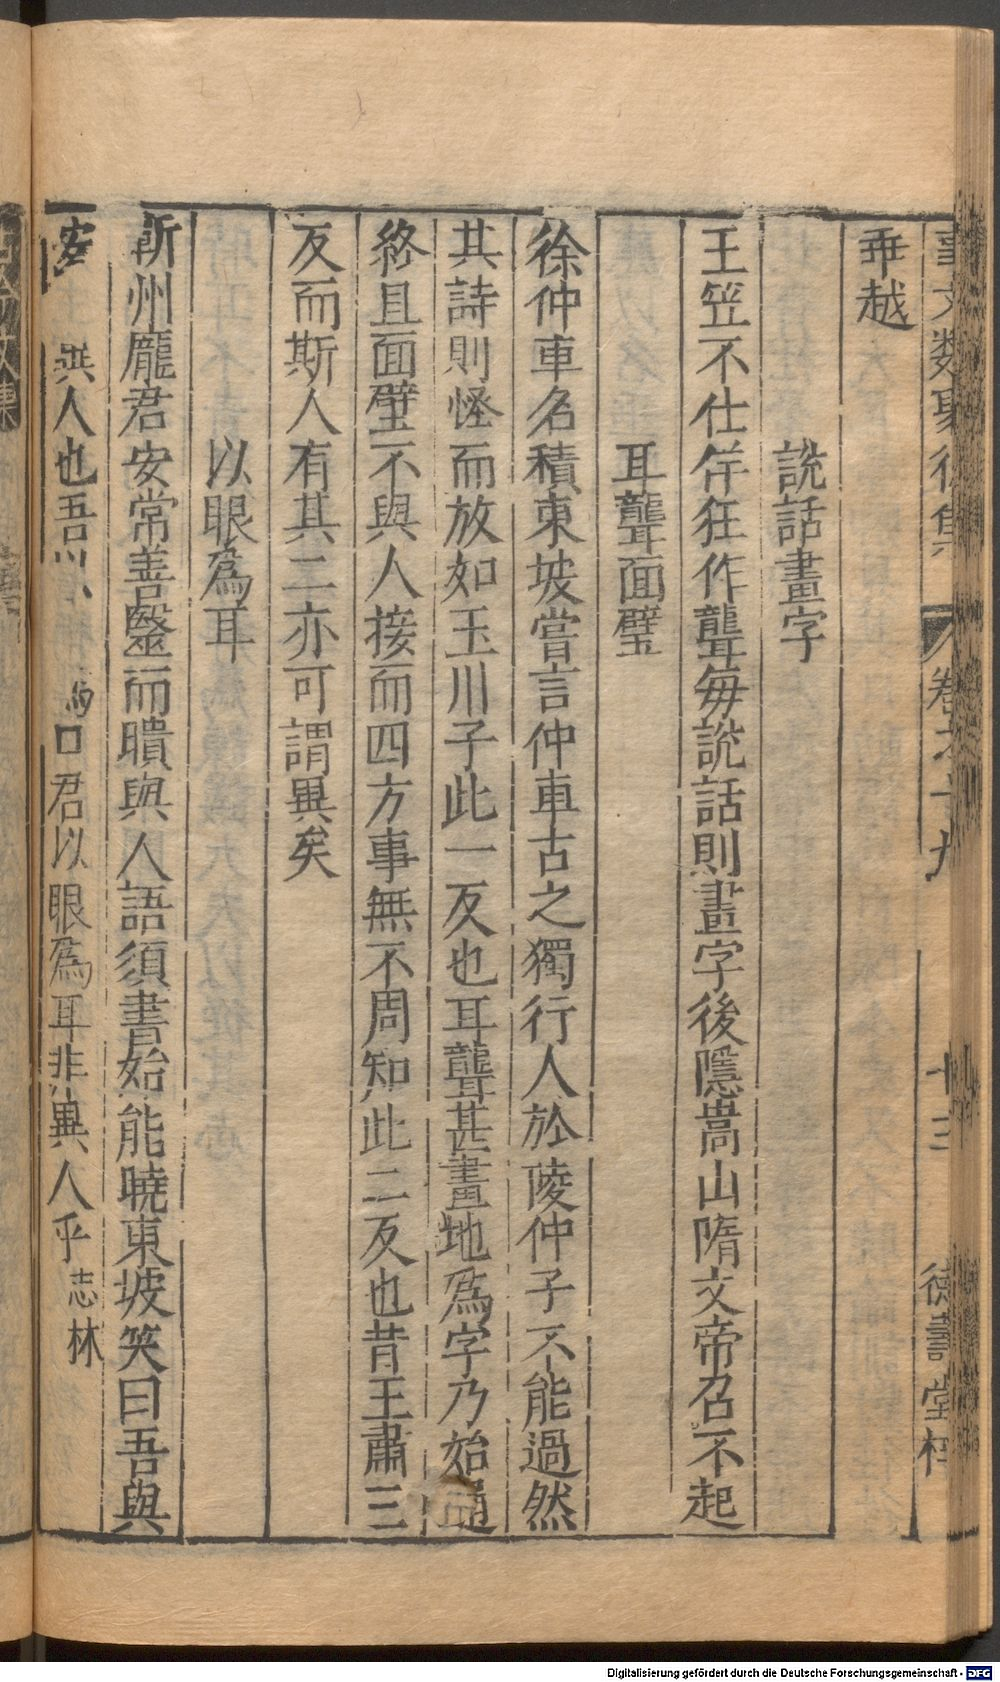 事文類聚後集 卷之十九 十三 德壽堂梓
乖越
說話畫字
王笠不仕佯狂作聾每說話則畫字後隱嵩山隋文帝召不起
耳聾面璧
徐仲車名積東坡嘗言仲車古之獨行人於陵仲子不能過然
其詩則怪而放如玉川子此一反也耳聾甚畫地爲字乃始通
終且面璧不與人接而四方事無不周知此二反也昔王肅三
反而斯人有其二亦可謂異矣
以眼爲耳
蘄州龐君安常善醫而聵與人語須書始能曉東坡笑曰吾與
安異人也吾以爲口君以眼爲耳非異人乎志林
Digitalisierung gefördert durch die Deutsche Forschungsgemeinschaft - DFG